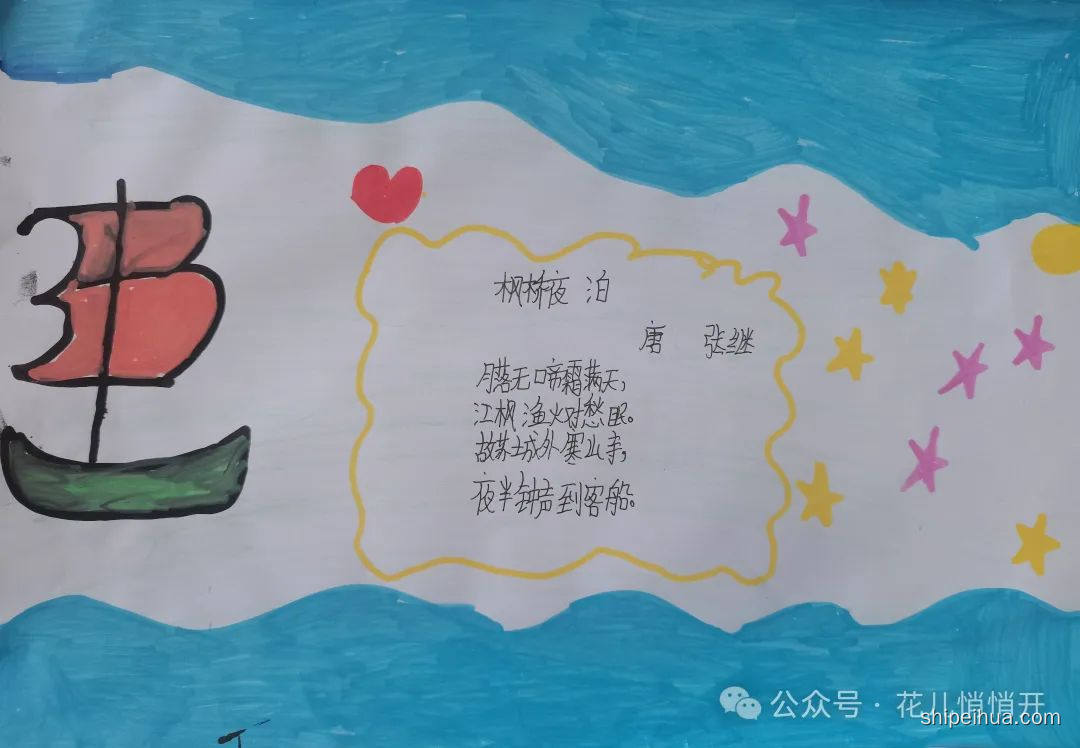 枫桥夜 泊
唐 张继
月落无啼霜满天，
江枫渔火对愁眠。
故苏城外寒山寺，
夜半钟声到客船。
公众号·花儿悄悄开
shipeihua.com